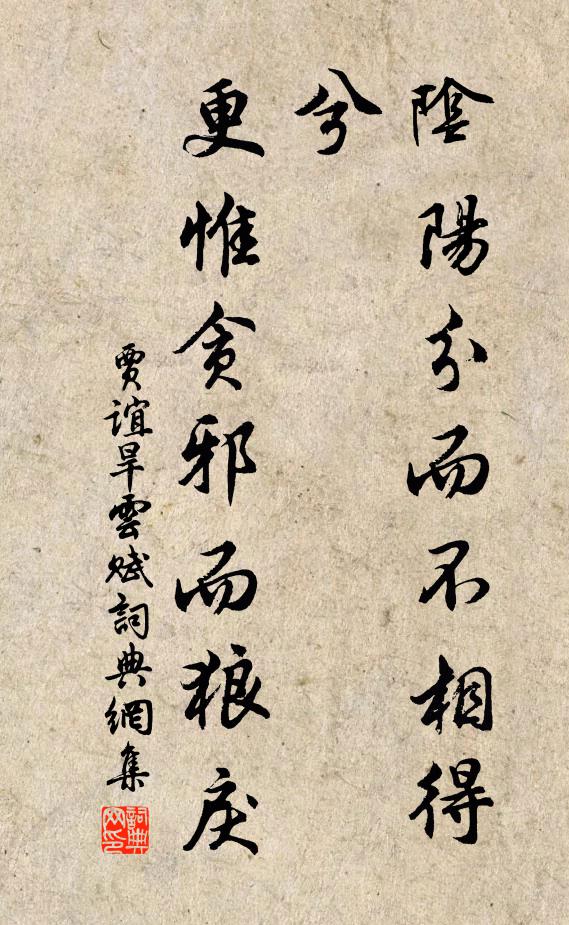 陰陽分而不相得
兮
更惟貪邪而狼戾
賈誼旱雲賦詞典網集
詞典
网印